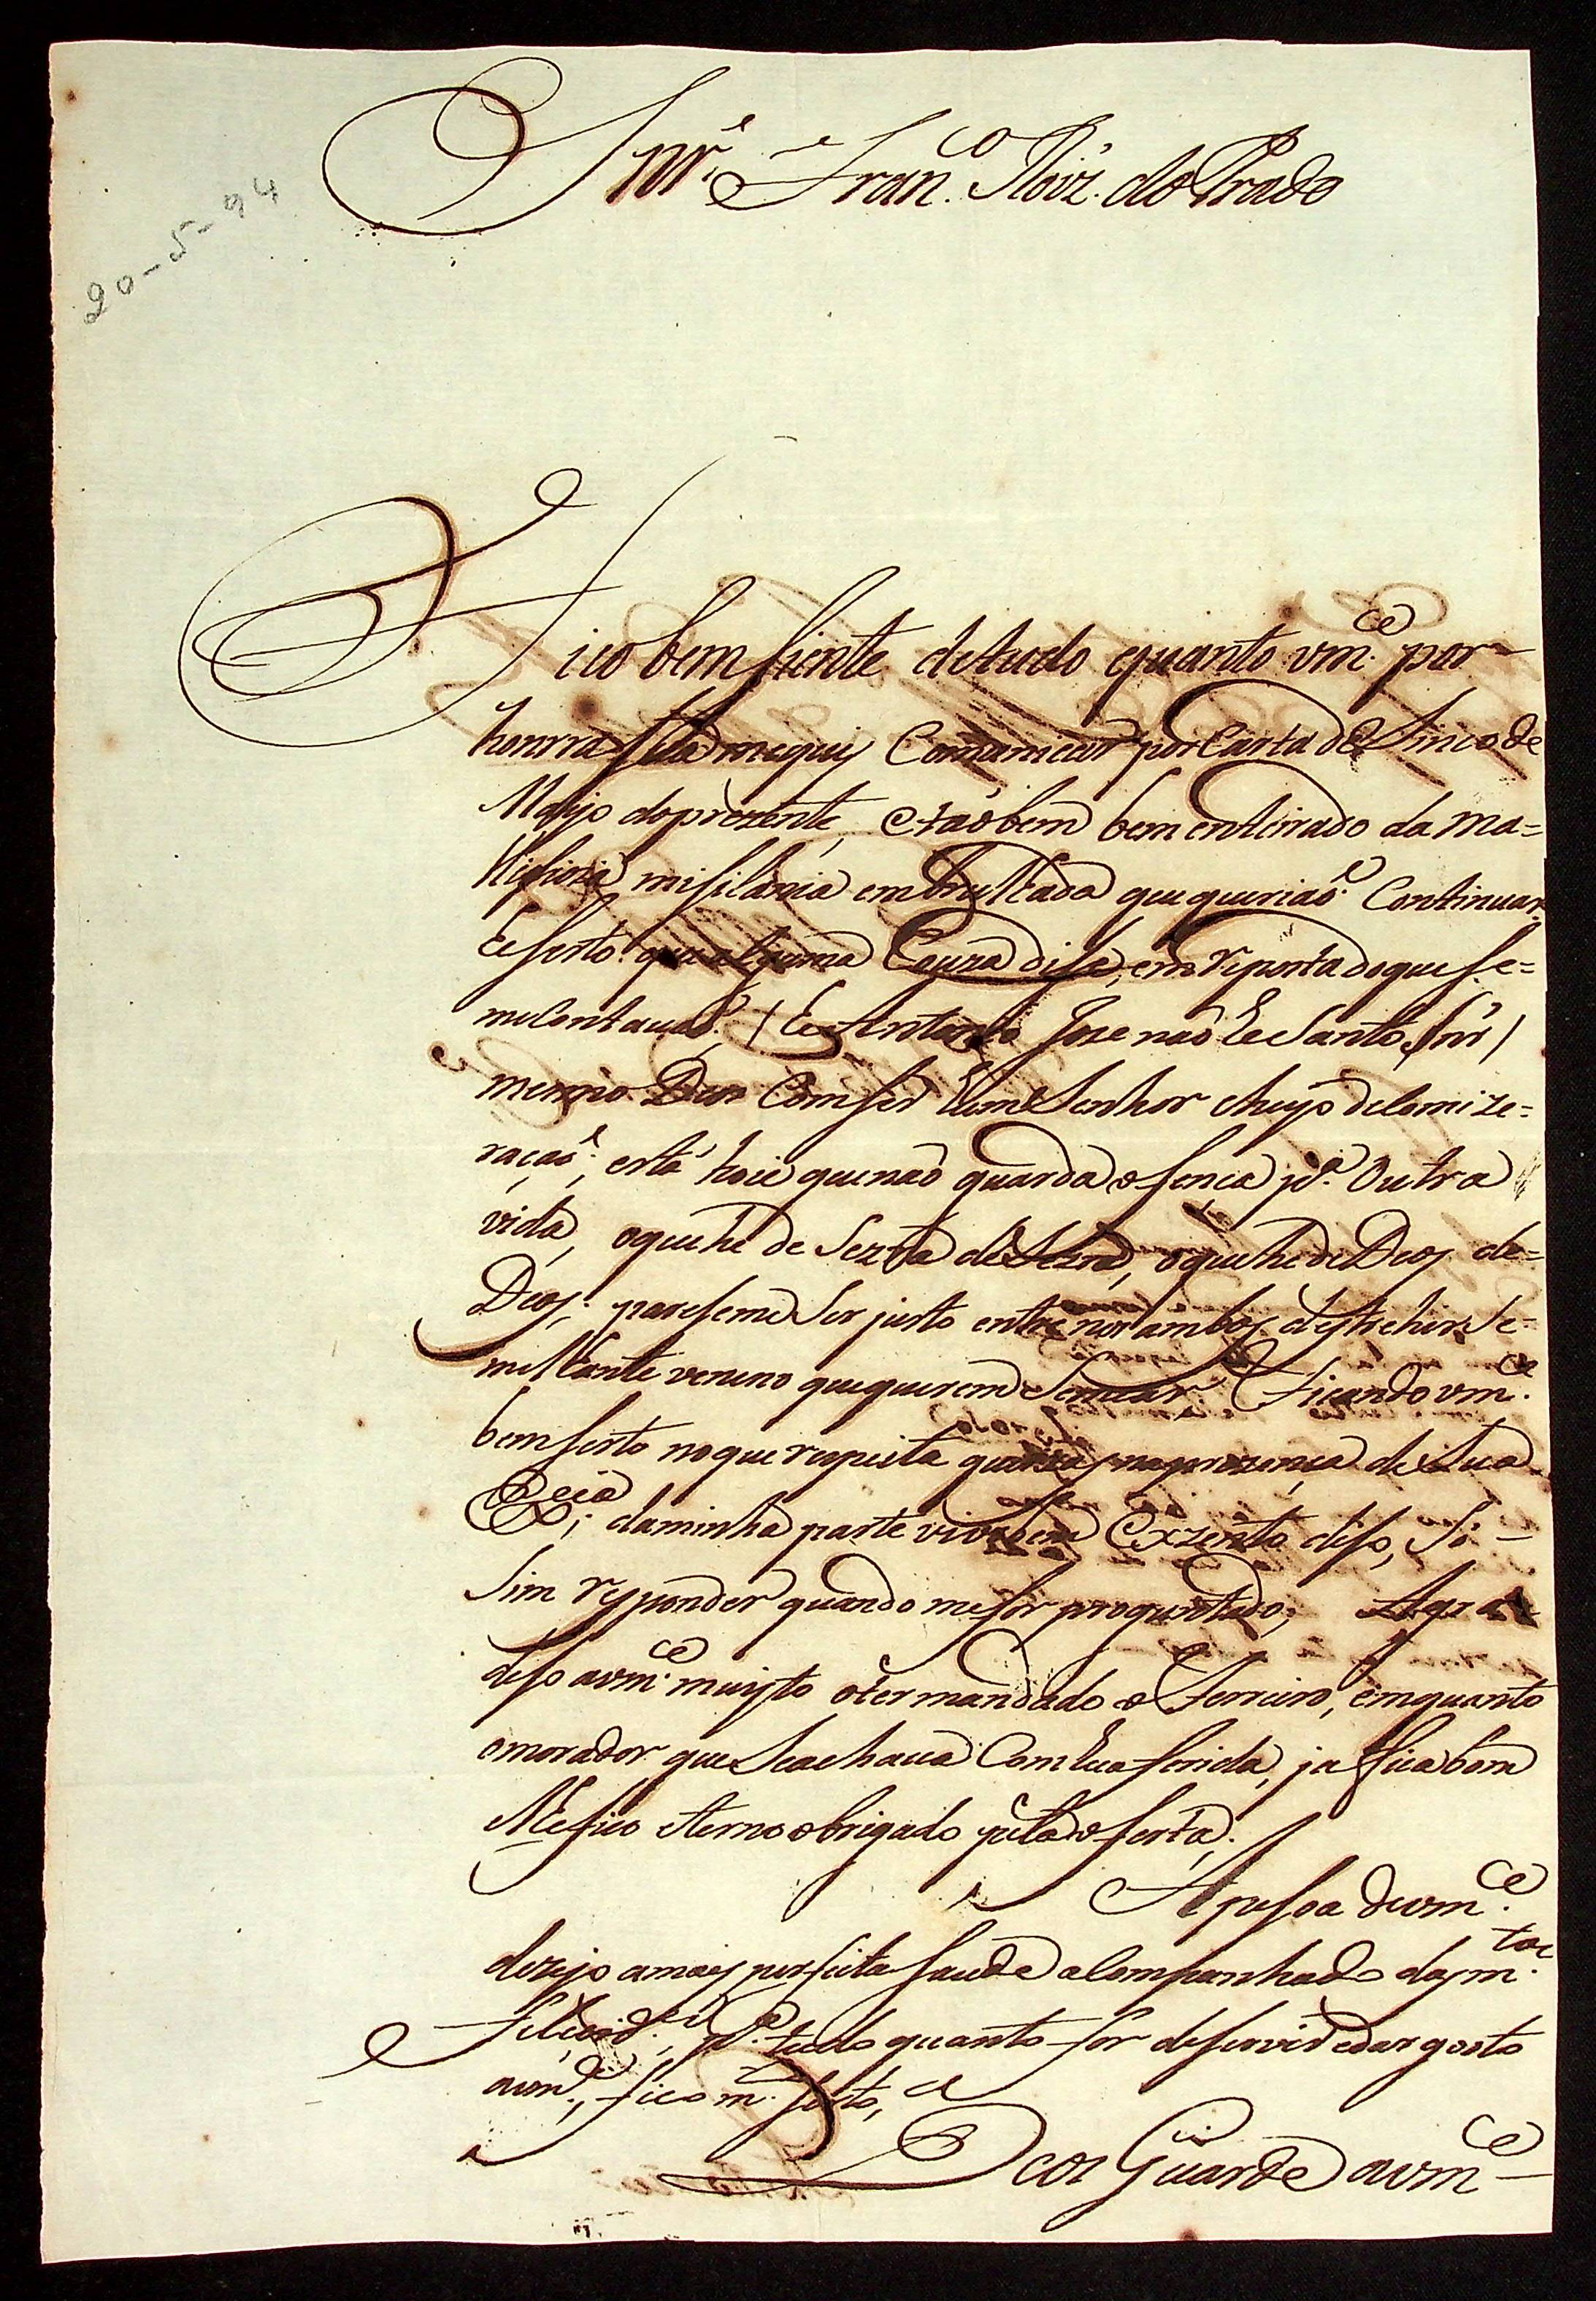 20-5-94
Snr.e Fran.co Roiz. do Prado
Fico bem siente de tudo quanto vm.ce por
honrra sua me quis Comunicar por Carta de Sinco de
Mayo do prezente, e taõbem bem enteirado da ma=
liçioza misilania embrulhada que queriaõ Continuar
he serto que alguma Couza dise, em resposta do que se=
me Contavaõ / he Antonio Joze naõ he Santo Snr /
mesmo Deos Com ser hum Senhor cheyo de Comize=
raçaõ; está hoie que naõ guarda ofença p.a Outra
vida, o que he de Sezar de Sezar, o que he de Deos de=
Deos; pareseme Ser justo entre nos ambos destrehir Se=
milhante veneno que querem Semear Ficando vm.ce
bem serto no que respeita queixas na prezença de Sua
Ex.cia; da minha parte viva bem Exzento diso, Só
Sim responder quando me for proguntado; Agra
deso a vm.ce muisto o ter mandado o Ferreiro, emquanto
o morador que Se achava Com hua ferida, ja fica bom
Me fico eterno obrigado pela oferta;
A pesoa de vm.ce
dezejo a mais perfeita saude aCompanhado das m.tas
felicid.es p.a tudo quanto for de servir e dar gosto
a vm.ce, fico m.to serto,
Deos Guarde a vm.ce